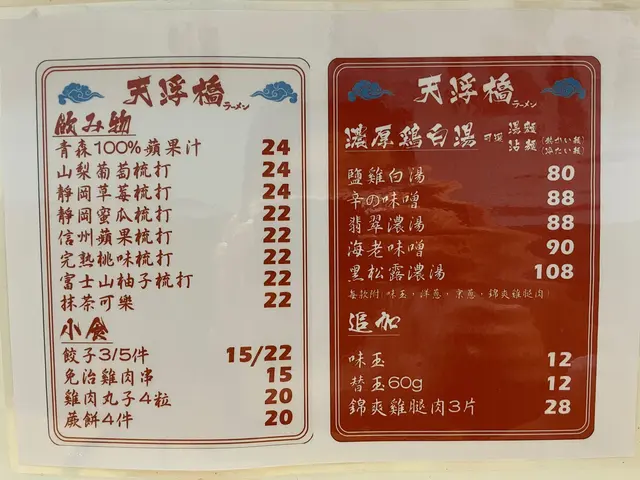 天浮橋
ラーメン
飲み物
青森100%蘋果汁 24
山梨葡萄梳打 24
靜岡草莓梳打 24
靜岡蜜瓜梳打 22
信州蘋果梳打 22
完熟桃味梳打 22
富士山柚子梳打 22
抹茶可樂 22
小食
餃子3/5件 15/22
免治雞肉串 15
雞肉丸子4粒 20
蕨餅4件 20
天浮橋
ラーメン
濃厚鶏白湯 可選 湯麵 (熱かい麺)
沾麵 (冷たい麺)
鹽雞白湯 80
辛の味噌 88
翡翠濃湯 88
海老味噌 90
黑松露濃湯 108
每款附(味玉,洋蔥,京蔥,錦爽雞腿肉)
追加
味玉 12
替玉60g 12
錦爽雞腿肉3片 28